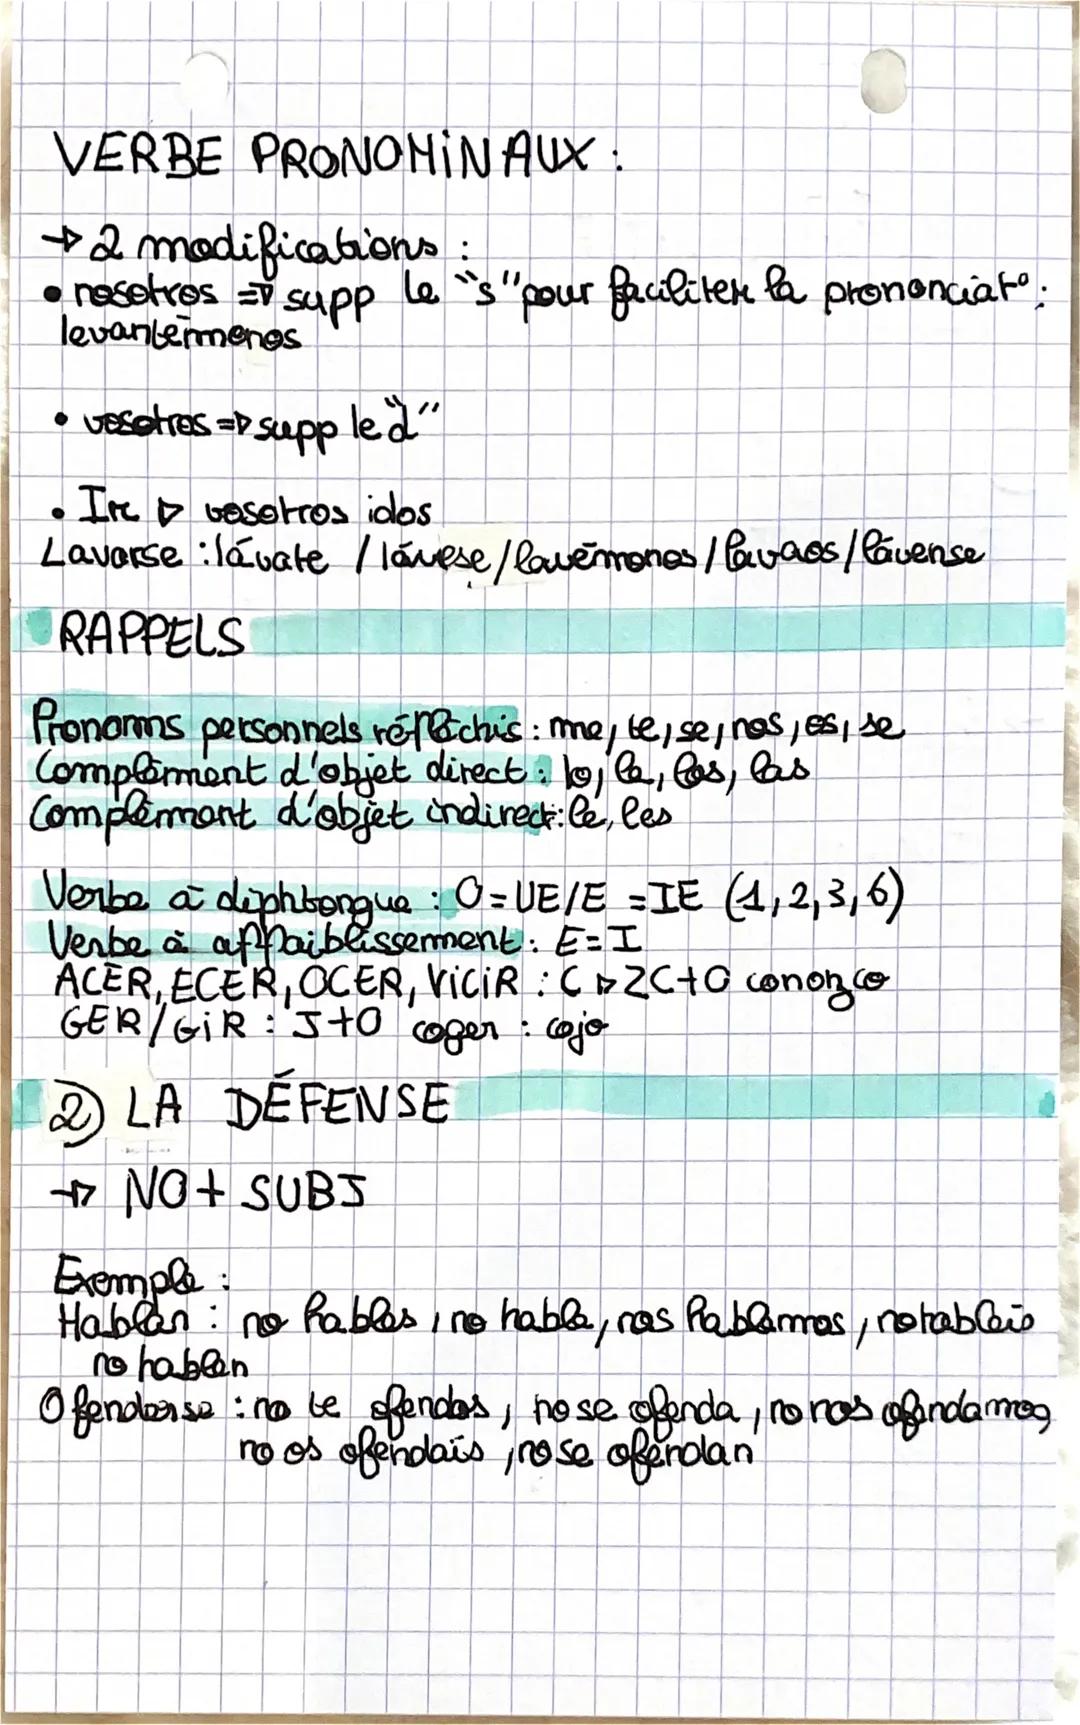 VERBE PRONOMINAUX :
→ 2 modifications :
• nosotros => supp le "s" pour faciliter la prononciat° :
levantémonos
• vosotros => supp le "d"
• Ir ▷ vosotros idos
Lavarse : lávate / lávese / lavémonos / lavaos / lávense
RAPPELS
Pronoms personnels réfléchis : me, te, se, nos, os, se
Complément d'objet direct : lo, la, los, las
Complément d'objet indirect : le, les
Verbe à diphtongue : O=UE/E =IE (1,2,3,6)
Verbe à affaiblissement : E=I
ACER, ECER, OCER, VICIR : C ▷ ZC+O conozco
GER/GIR : J+O coger : cojo
2) LA DÉFENSE
→ NO + SUBJ
Exemple :
Hablan : no hables, no hable, nos hablemos, no hableis
no hablen
Ofenderse : no te ofendas, no se ofenda, no nos ofendamos,
no os ofendais, no se ofendan